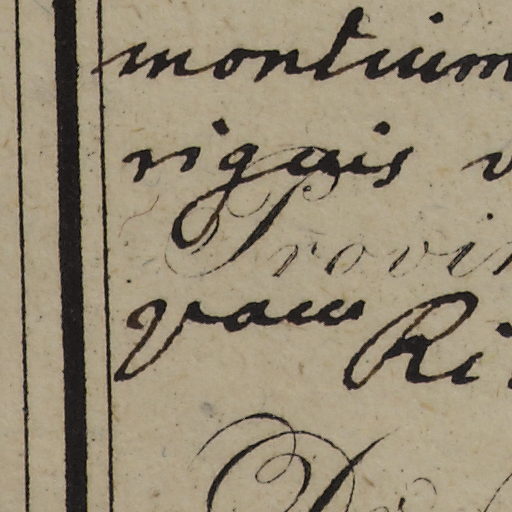 montium
riguis v
Provin
quam
Ri
De